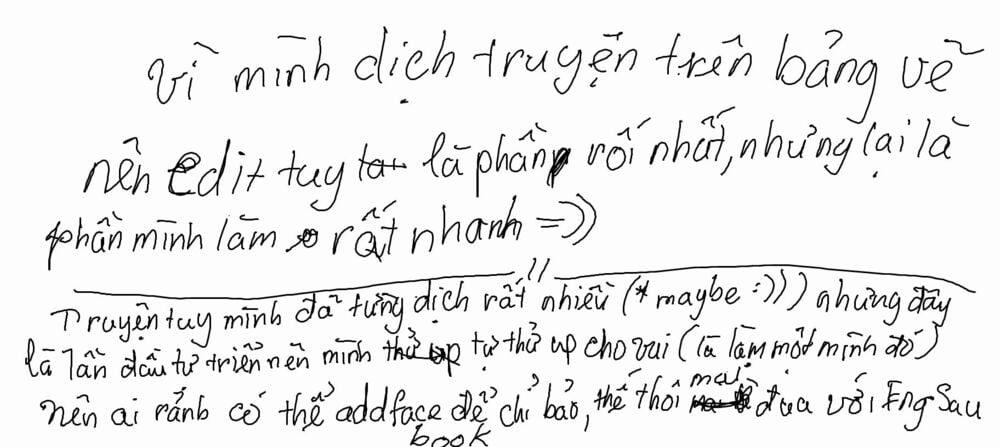 vì mình dịch truyện trên bảng vẽ
nên edit tuy là phần rối nhất, nhưng lại là
phần mình làm rất nhanh =))
Truyện tuy mình đã từng dịch rất nhiều (*maybe :))) nhưng đây
là lần đầu tự triển nên mình tự thử up cho vui (là làm một mình đó)
nên ai rảnh có thể add face book để chỉ bảo, thế thôi mai đua với Eng Sau